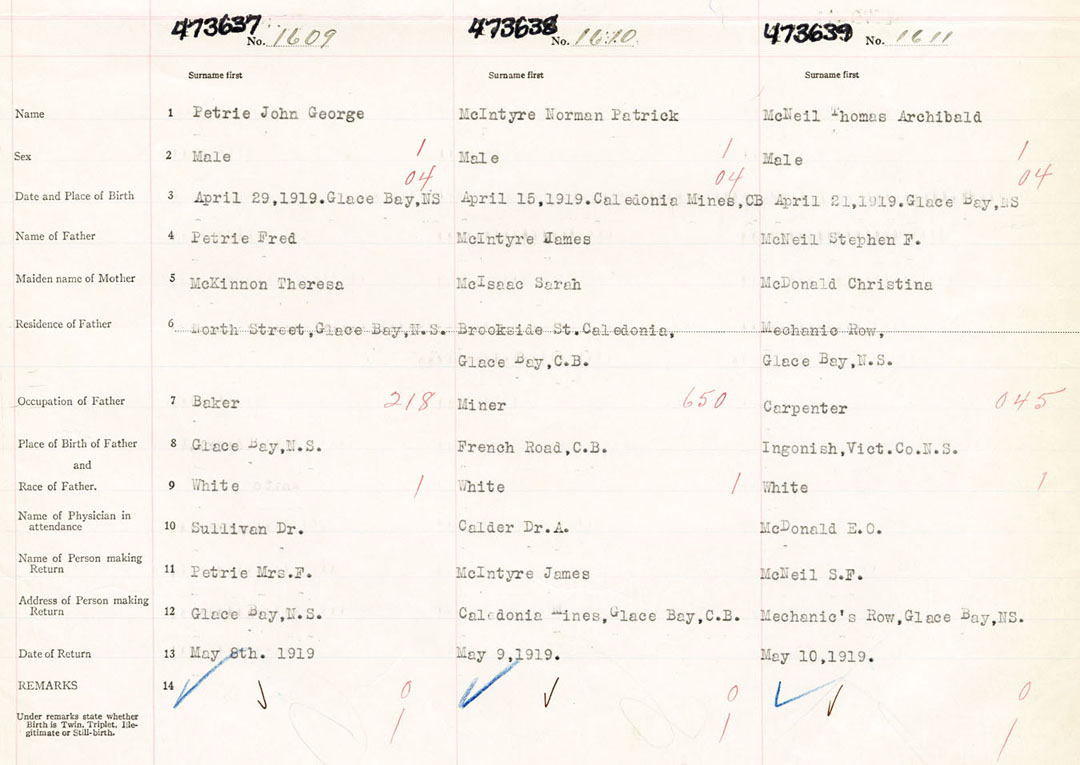 473637 No. 1609 473638 No. 1610 473639 No. 1611
Surname first Surname first Surname first
Name 1 Petrie John George McIntyre Norman Patrick McNeil Thomas Archibald
Sex 2 Male 1 Male 1 Male 1
04 04 04
Date and Place of Birth 3 April 29,1919.Glace Bay,NS April 15,1919.Caledonia Mines,CB April 21,1919.Glace Bay,NS
Name of Father 4 Petrie Fred McIntyre James McNeil Stephen F.
Maiden name of Mother 5 McKinnon Theresa McIsaac Sarah McDonald Christina
Residence of Father 6 North Street,Glace Bay,N.S. Brookside St.Caledonia, Mechanic Row,
Glace Bay,C.B. Glace Bay,N.S.
Occupation of Father 7 Baker 218 Miner 650 Carpenter 045
Place of Birth of Father 8 Glace Bay,N.S. French Road,C.B. Ingonish,Vict.Co.N.S.
and
Race of Father. 9 White 1 White 1 White 1
Name of Physician in
attendance 10 Sullivan Dr. Calder Dr.A. McDonald E.O.
Name of Person making
Return 11 Petrie Mrs.F. McIntyre James McNeil S.F.
Address of Person making
Return 12 Glace Bay,N.S. Caledonia Mines,Glace Bay,C.B. Mechanic's Row,Glace Bay,NS.
Date of Return 13 May 8th. 1919 May 9,1919. May 10,1919.
REMARKS 14 0 0 0
Under remarks state whether
Birth is Twin, Triplet, Ille-
gitimate or Still-birth. 1 1 1